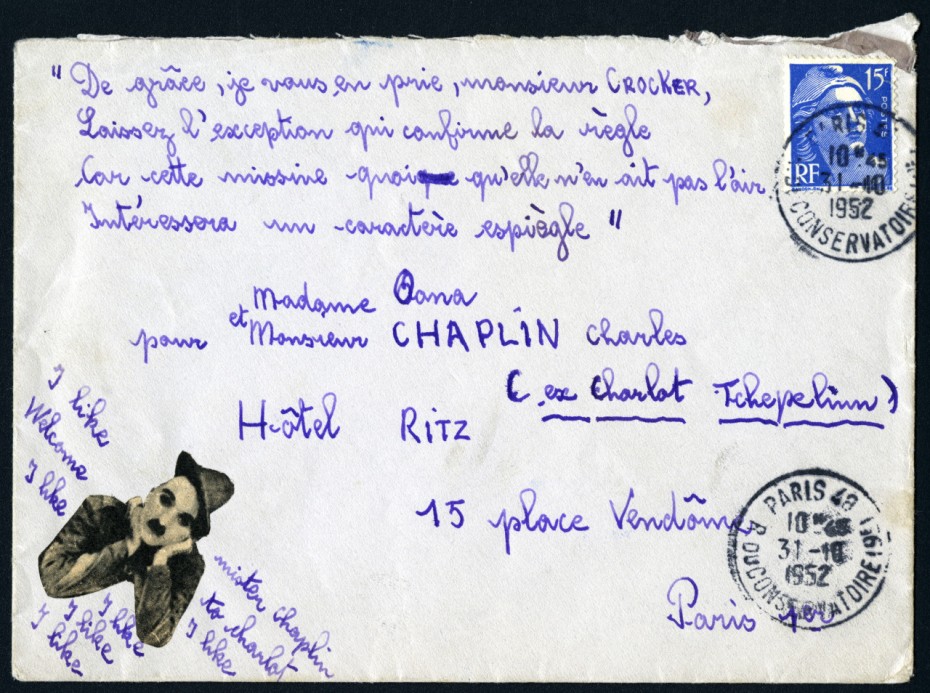 " De grâce, je vous en prie, monsieur CROCKER,
Laissez l'exception qui confirme la règle
Car cette missive quoi qu'elle n'en ait pas l'air
Intéressera un caractère espiègle "
15F
POSTES
RF
PARIS 48
10H45
31-10
1952
R. DU CONSERVATOIRE
Madame Oana
et
pour Monsieur CHAPLIN Charles
(ex Charlot Tchepelinn)
Hôtel RITZ
15 place Vendôme
Paris 1er
PARIS 48
10H45
31-10
1952
R. DU CONSERVATOIRE (9E)
I like
Welcome
I like
I like
I like
I like
I like
I like
mister Chaplin
to charlot
I like